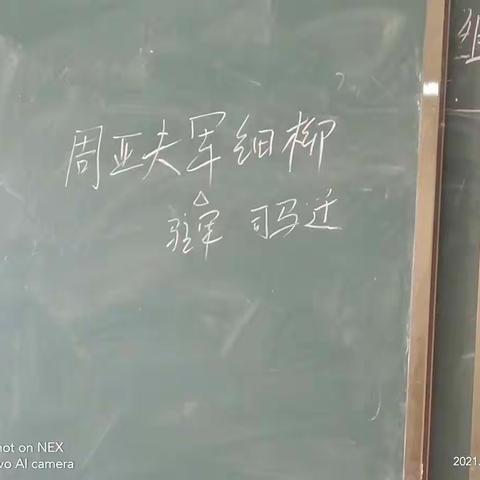 周亚夫军细柳
△
驻军 司马迁
组
not on NEX
vo AI camera
2021.